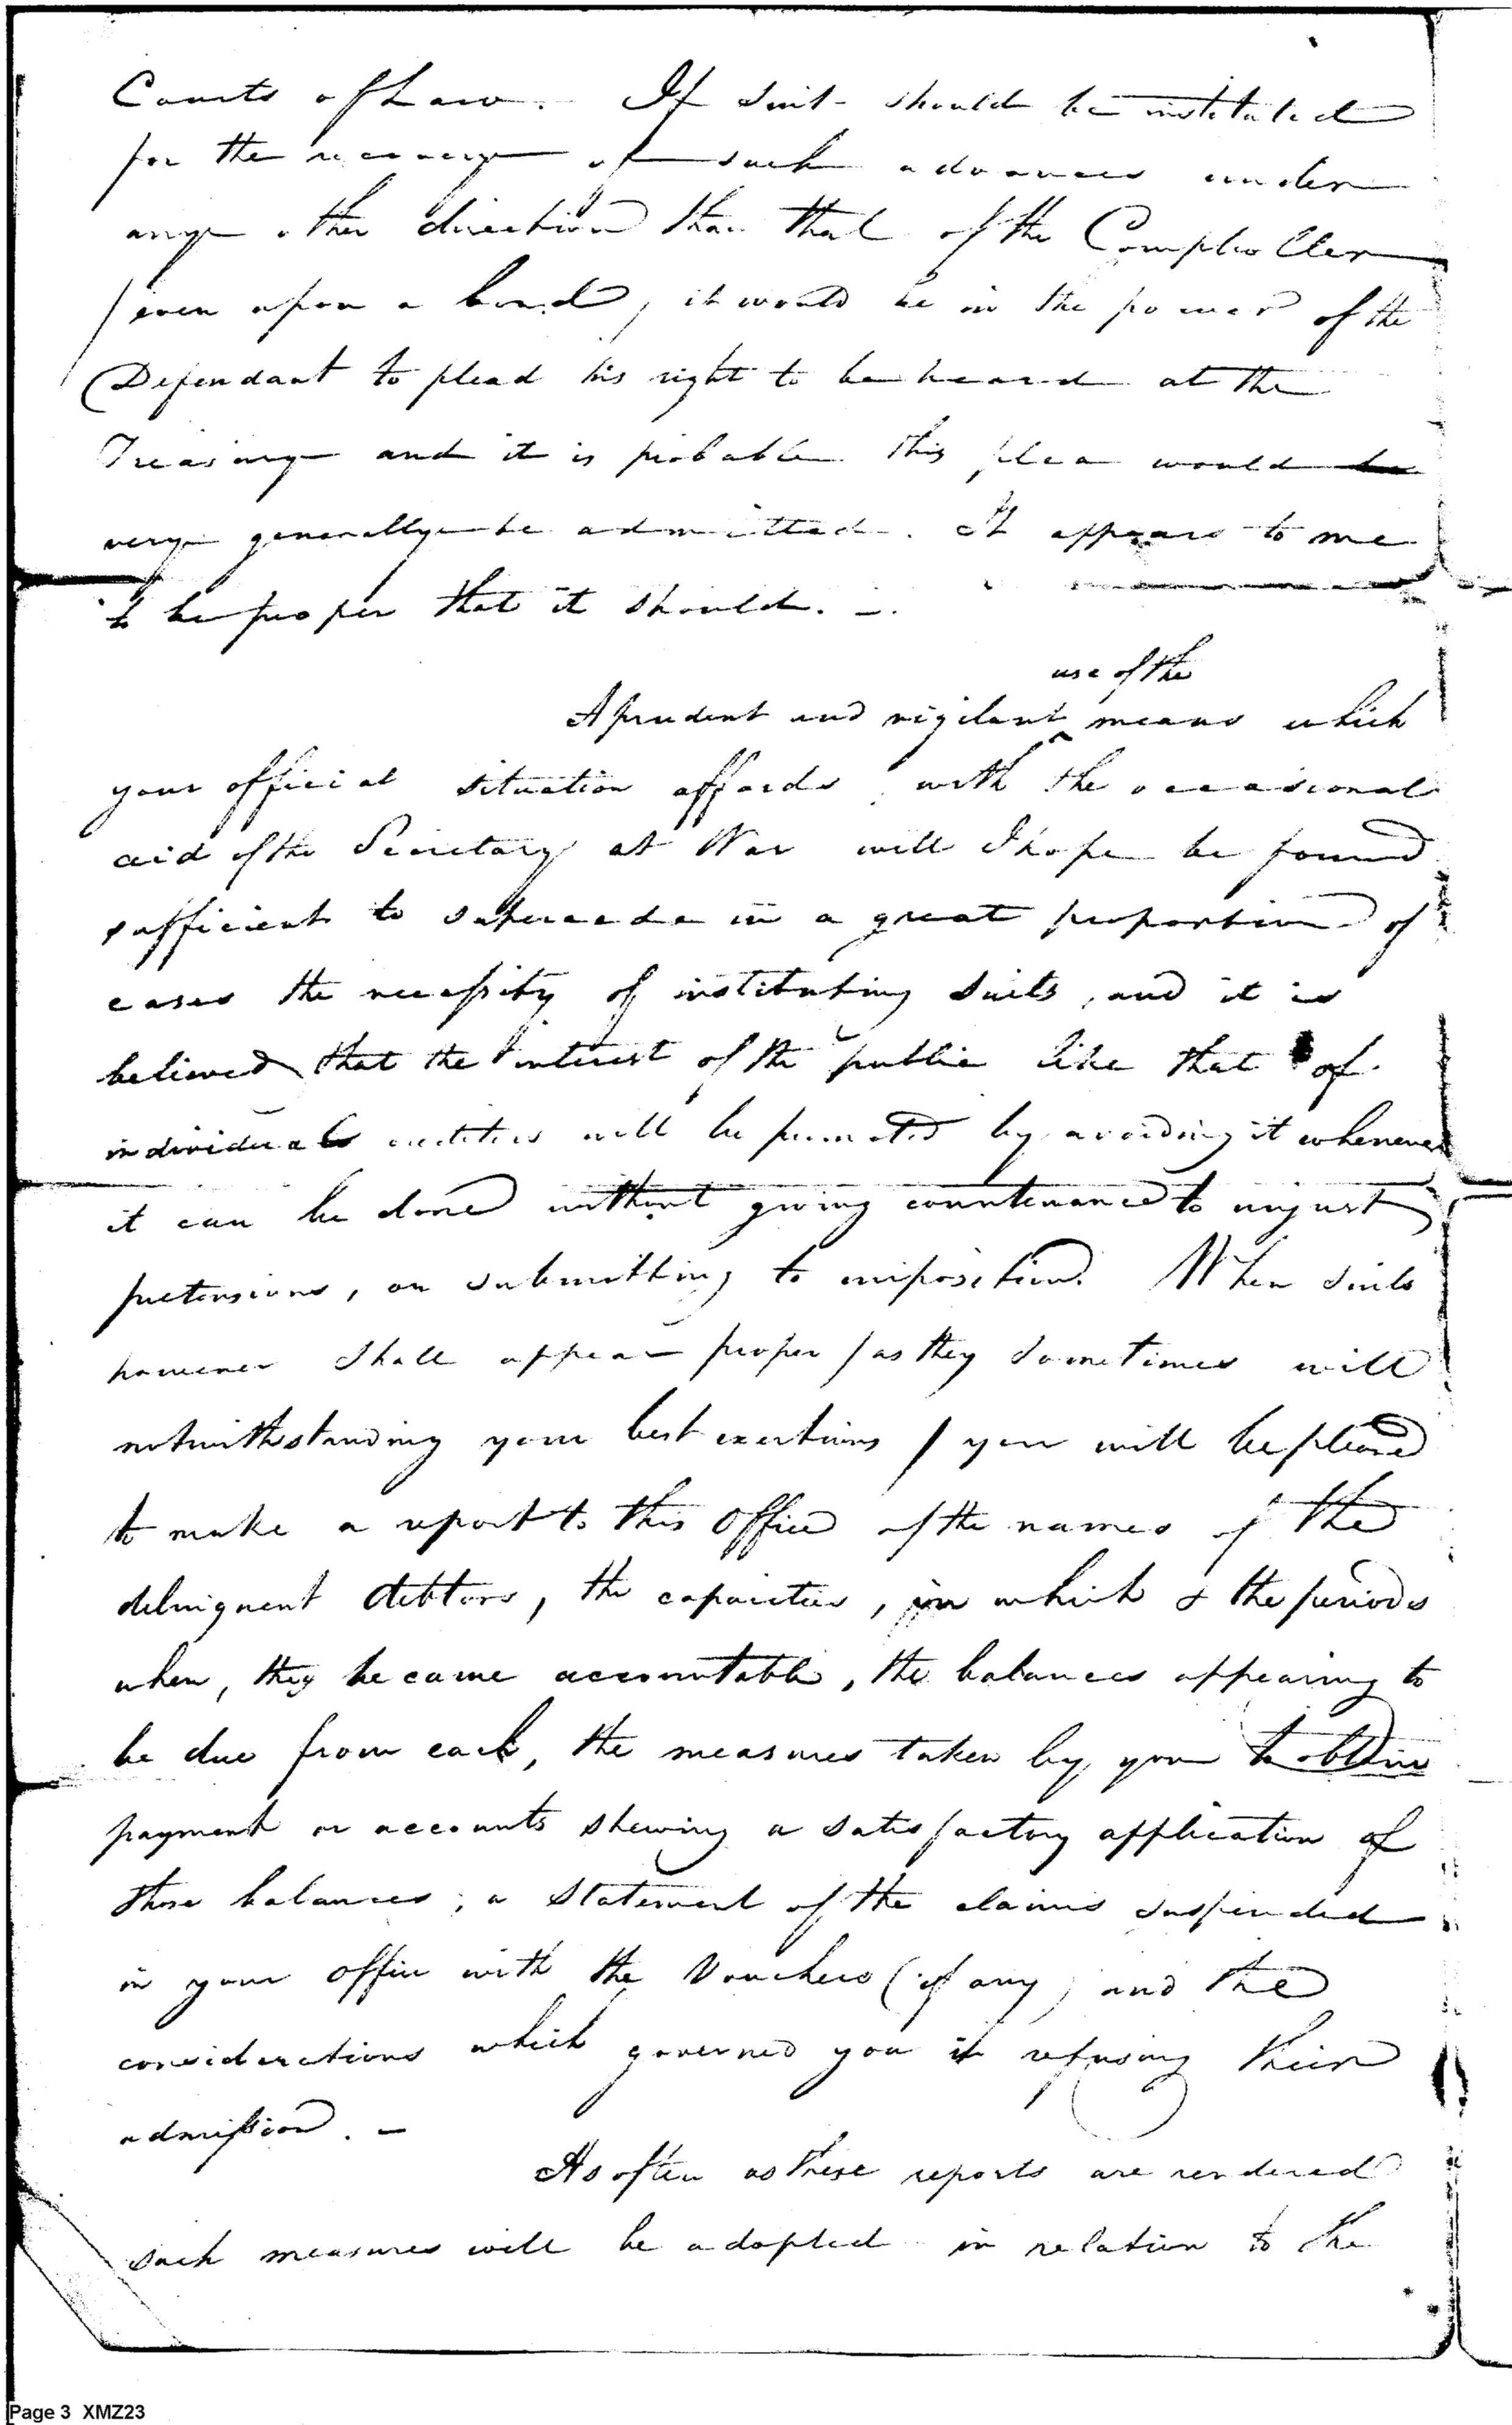 Courts of Law. If suit should be instituted
for the recovery of such advances under
any other direction than that of the Comptroller
/even upon a bond/, it would be in the power of the
Defendant to plead his right to be heard at the
Treasury and it is probable this plea would
very generally be admitted. It appears to me
to be proper that it should. —.
use of the
A prudent and vigilant ^ means which
your official situation affords, with the occasional
aid of the Secretary at War will I hope be found
sufficient to supercede in a great proportion of
cases the necessity of instituting suits, and it is
believed that the interest of the public like that of
individual creditors will be promoted by avoiding it whenever
it can be done without giving countenance to unjust
pretensions, or submitting to imposition. When suits
however shall appear proper /as they sometimes will
notwithstanding your best exertions/ you will be pleased
to make a report to this Office of the names of the
delinquent debtors, the capacities, in which & the periods
when, they became accountable, the balances appearing to
be due from each, the measures taken by you to obtain
payment or accounts shewing a satisfactory application of
those balances, a statement of the claims suspended
in your office with the Vouchers (if any) and the
considerations which governed you in refusing their
admission. —
As often as these reports are rendered
such measures will be adopted in relation to the
Page 3 XMZ23